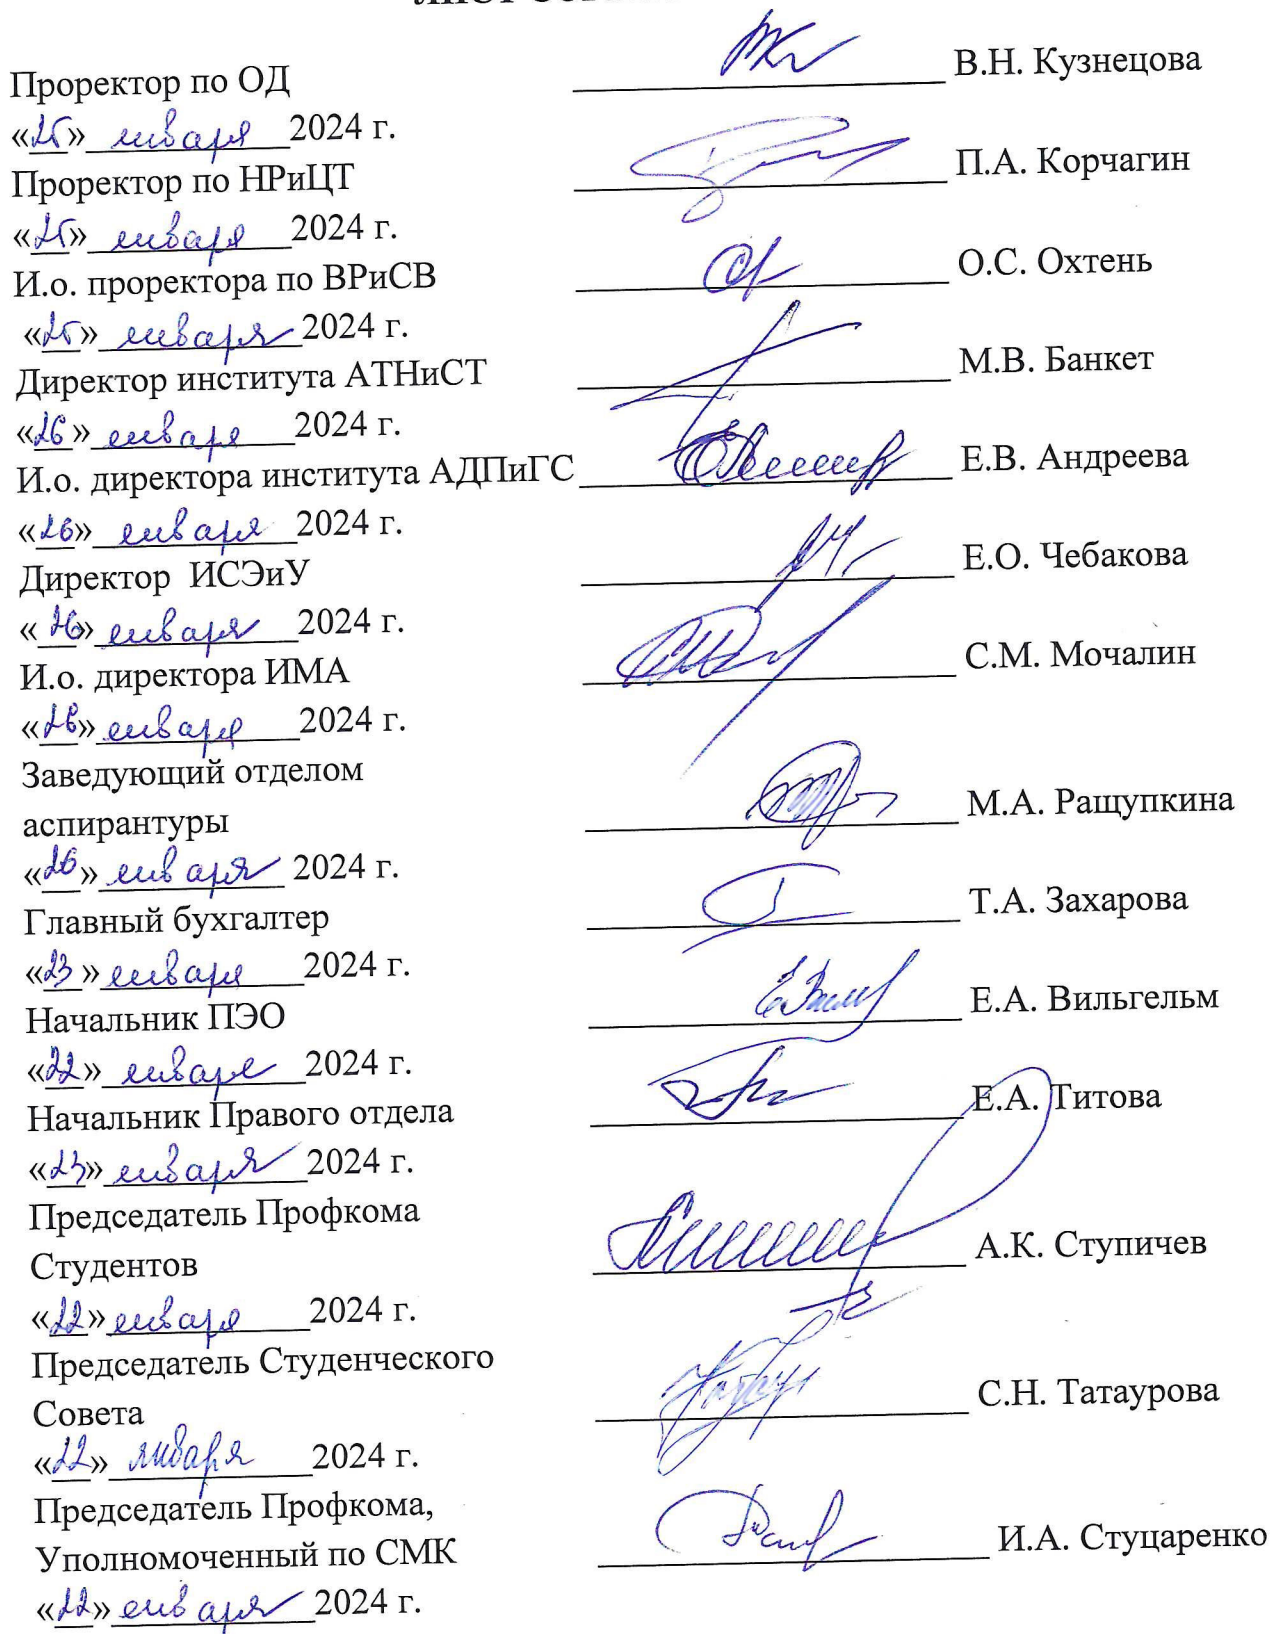 Проректор по ОД В.Н. Кузнецова
«25» января 2024 г.
Проректор по НРиЦТ П.А. Корчагин
«25» января 2024 г.
И.о. проректора по ВРиСВ О.С. Охтень
«25» января 2024 г.
Директор института АТНиСТ М.В. Банкет
«26» января 2024 г.
И.о. директора института АДПиГС Е.В. Андреева
«26» января 2024 г.
Директор ИСЭиУ Е.О. Чебакова
«26» января 2024 г.
И.о. директора ИМА С.М. Мочалин
«26» января 2024 г.
Заведующий отделом
аспирантуры М.А. Ращупкина
«26» января 2024 г.
Главный бухгалтер Т.А. Захарова
«23» января 2024 г.
Начальник ПЭО Е.А. Вильгельм
«22» января 2024 г.
Начальник Правого отдела Е.А. Титова
«23» января 2024 г.
Председатель Профкома
Студентов А.К. Ступичев
«22» января 2024 г.
Председатель Студенческого
Совета С.Н. Татаурова
«22» января 2024 г.
Председатель Профкома,
Уполномоченный по СМК И.А. Стуцаренко
«22» января 2024 г.